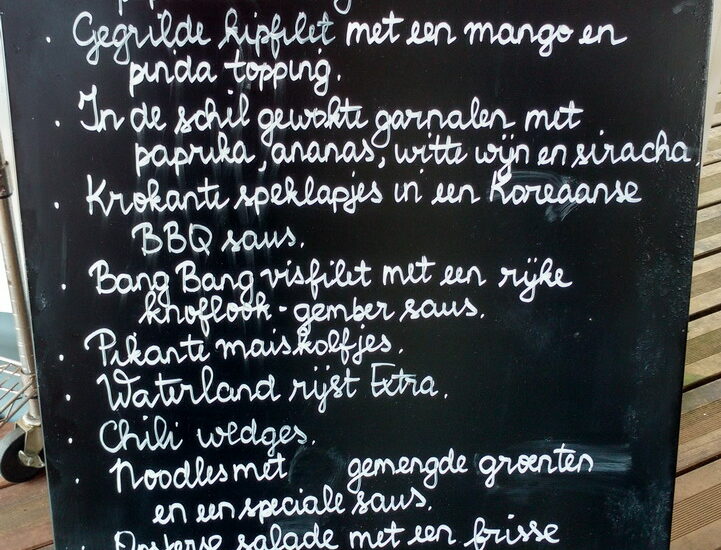 · Gegrilde kipfilet met een mango en
pinda topping.
· In de schil gewokte garnalen met
paprika, ananas, witte wijn en siracha
· Krokante speklapjes in een Koreaanse
BBQ saus.
· Bang Bang visfilet met een rijke
knoflook-gember saus.
· Pikante maiskolfjes.
· Waterland rijst Extra.
· Chili wedges.
· Noodles met gemengde groenten
en een speciale saus.
· Oosterse salade met een frisse